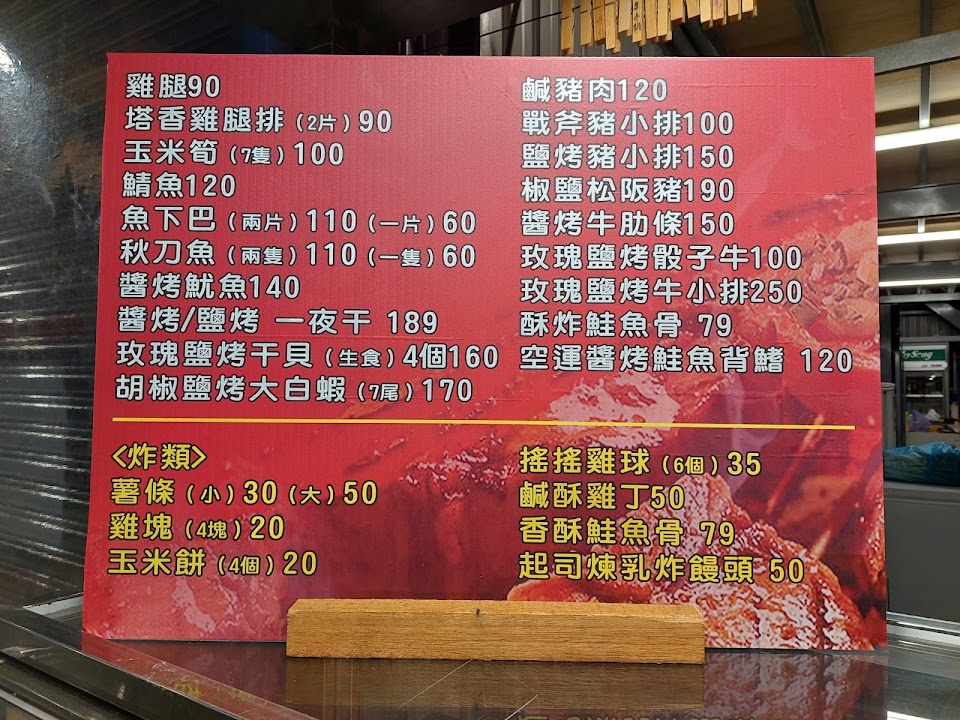 雞腿90
塔香雞腿排（2片）90
玉米筍（7隻）100
鯖魚120
魚下巴（兩片）110（一片）60
秋刀魚（兩隻）110（一隻）60
醬烤魷魚140
醬烤/鹽烤 一夜干 189
玫瑰鹽烤干貝（生食）4個160
胡椒鹽烤大白蝦（7尾）170
鹹豬肉120
戰斧豬小排100
鹽烤豬小排150
椒鹽松阪豬190
醬烤牛肋條150
玫瑰鹽烤骰子牛100
玫瑰鹽烤牛小排250
酥炸鮭魚骨 79
空運醬烤鮭魚背鰭 120
<炸類>
薯條（小）30（大）50
雞塊（4塊）20
玉米餅（4個）20
搖搖雞球（6個）35
鹹酥雞丁50
香酥鮭魚骨 79
起司煉乳炸饅頭 50